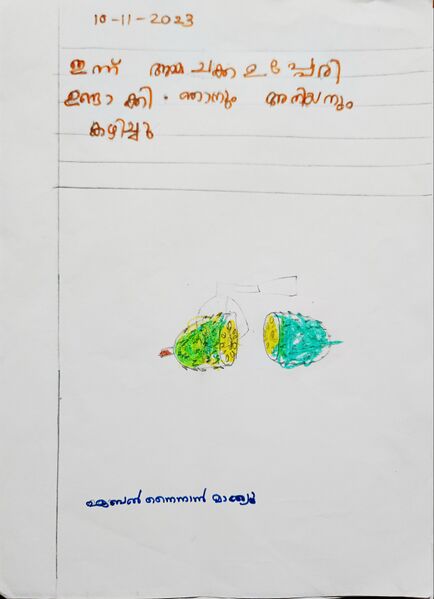 10-11-2023
ഇന്ന് അമ്മ ചക്ക ഉപ്പേരി
ഉണ്ടാക്കി. ഞാനും അനിയനും
കഴിച്ചു
നൈനാൻ മാത്യു